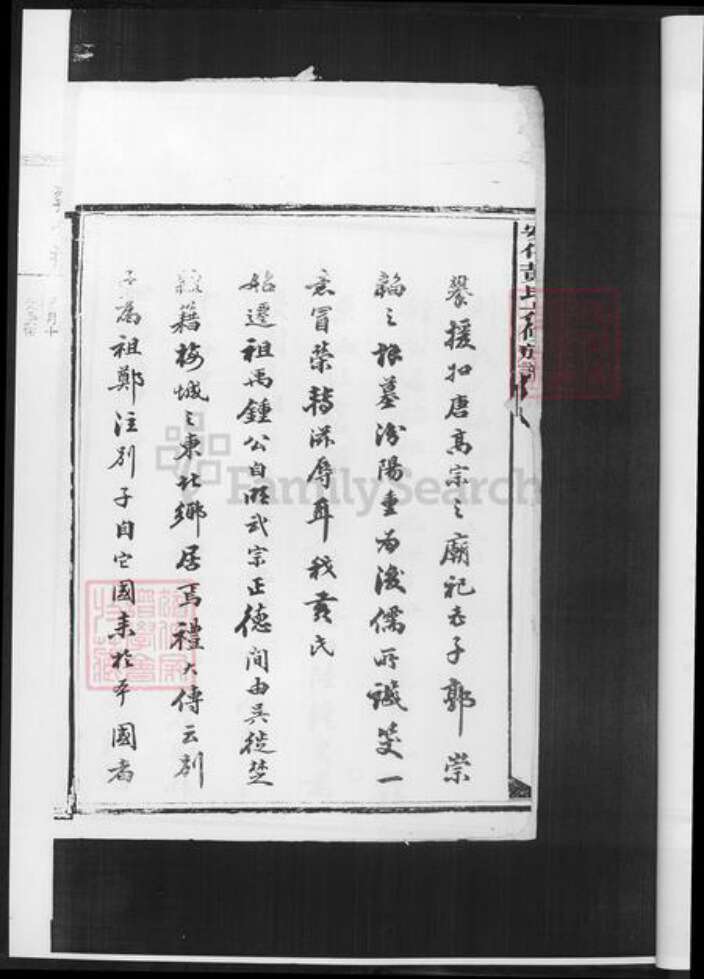 攀援如唐高宗之廟祀老子郭崇
韜之拜墓汾陽重為後儒所譏笑一
意冒榮轉滋辱耳我黃氏
始遷祖禹鍾公自明武宗正德間由吳徙楚
籍梅城之東北鄉居焉禮大傳云別
子為祖鄭注別子自它國來於本國者
FamilySearch